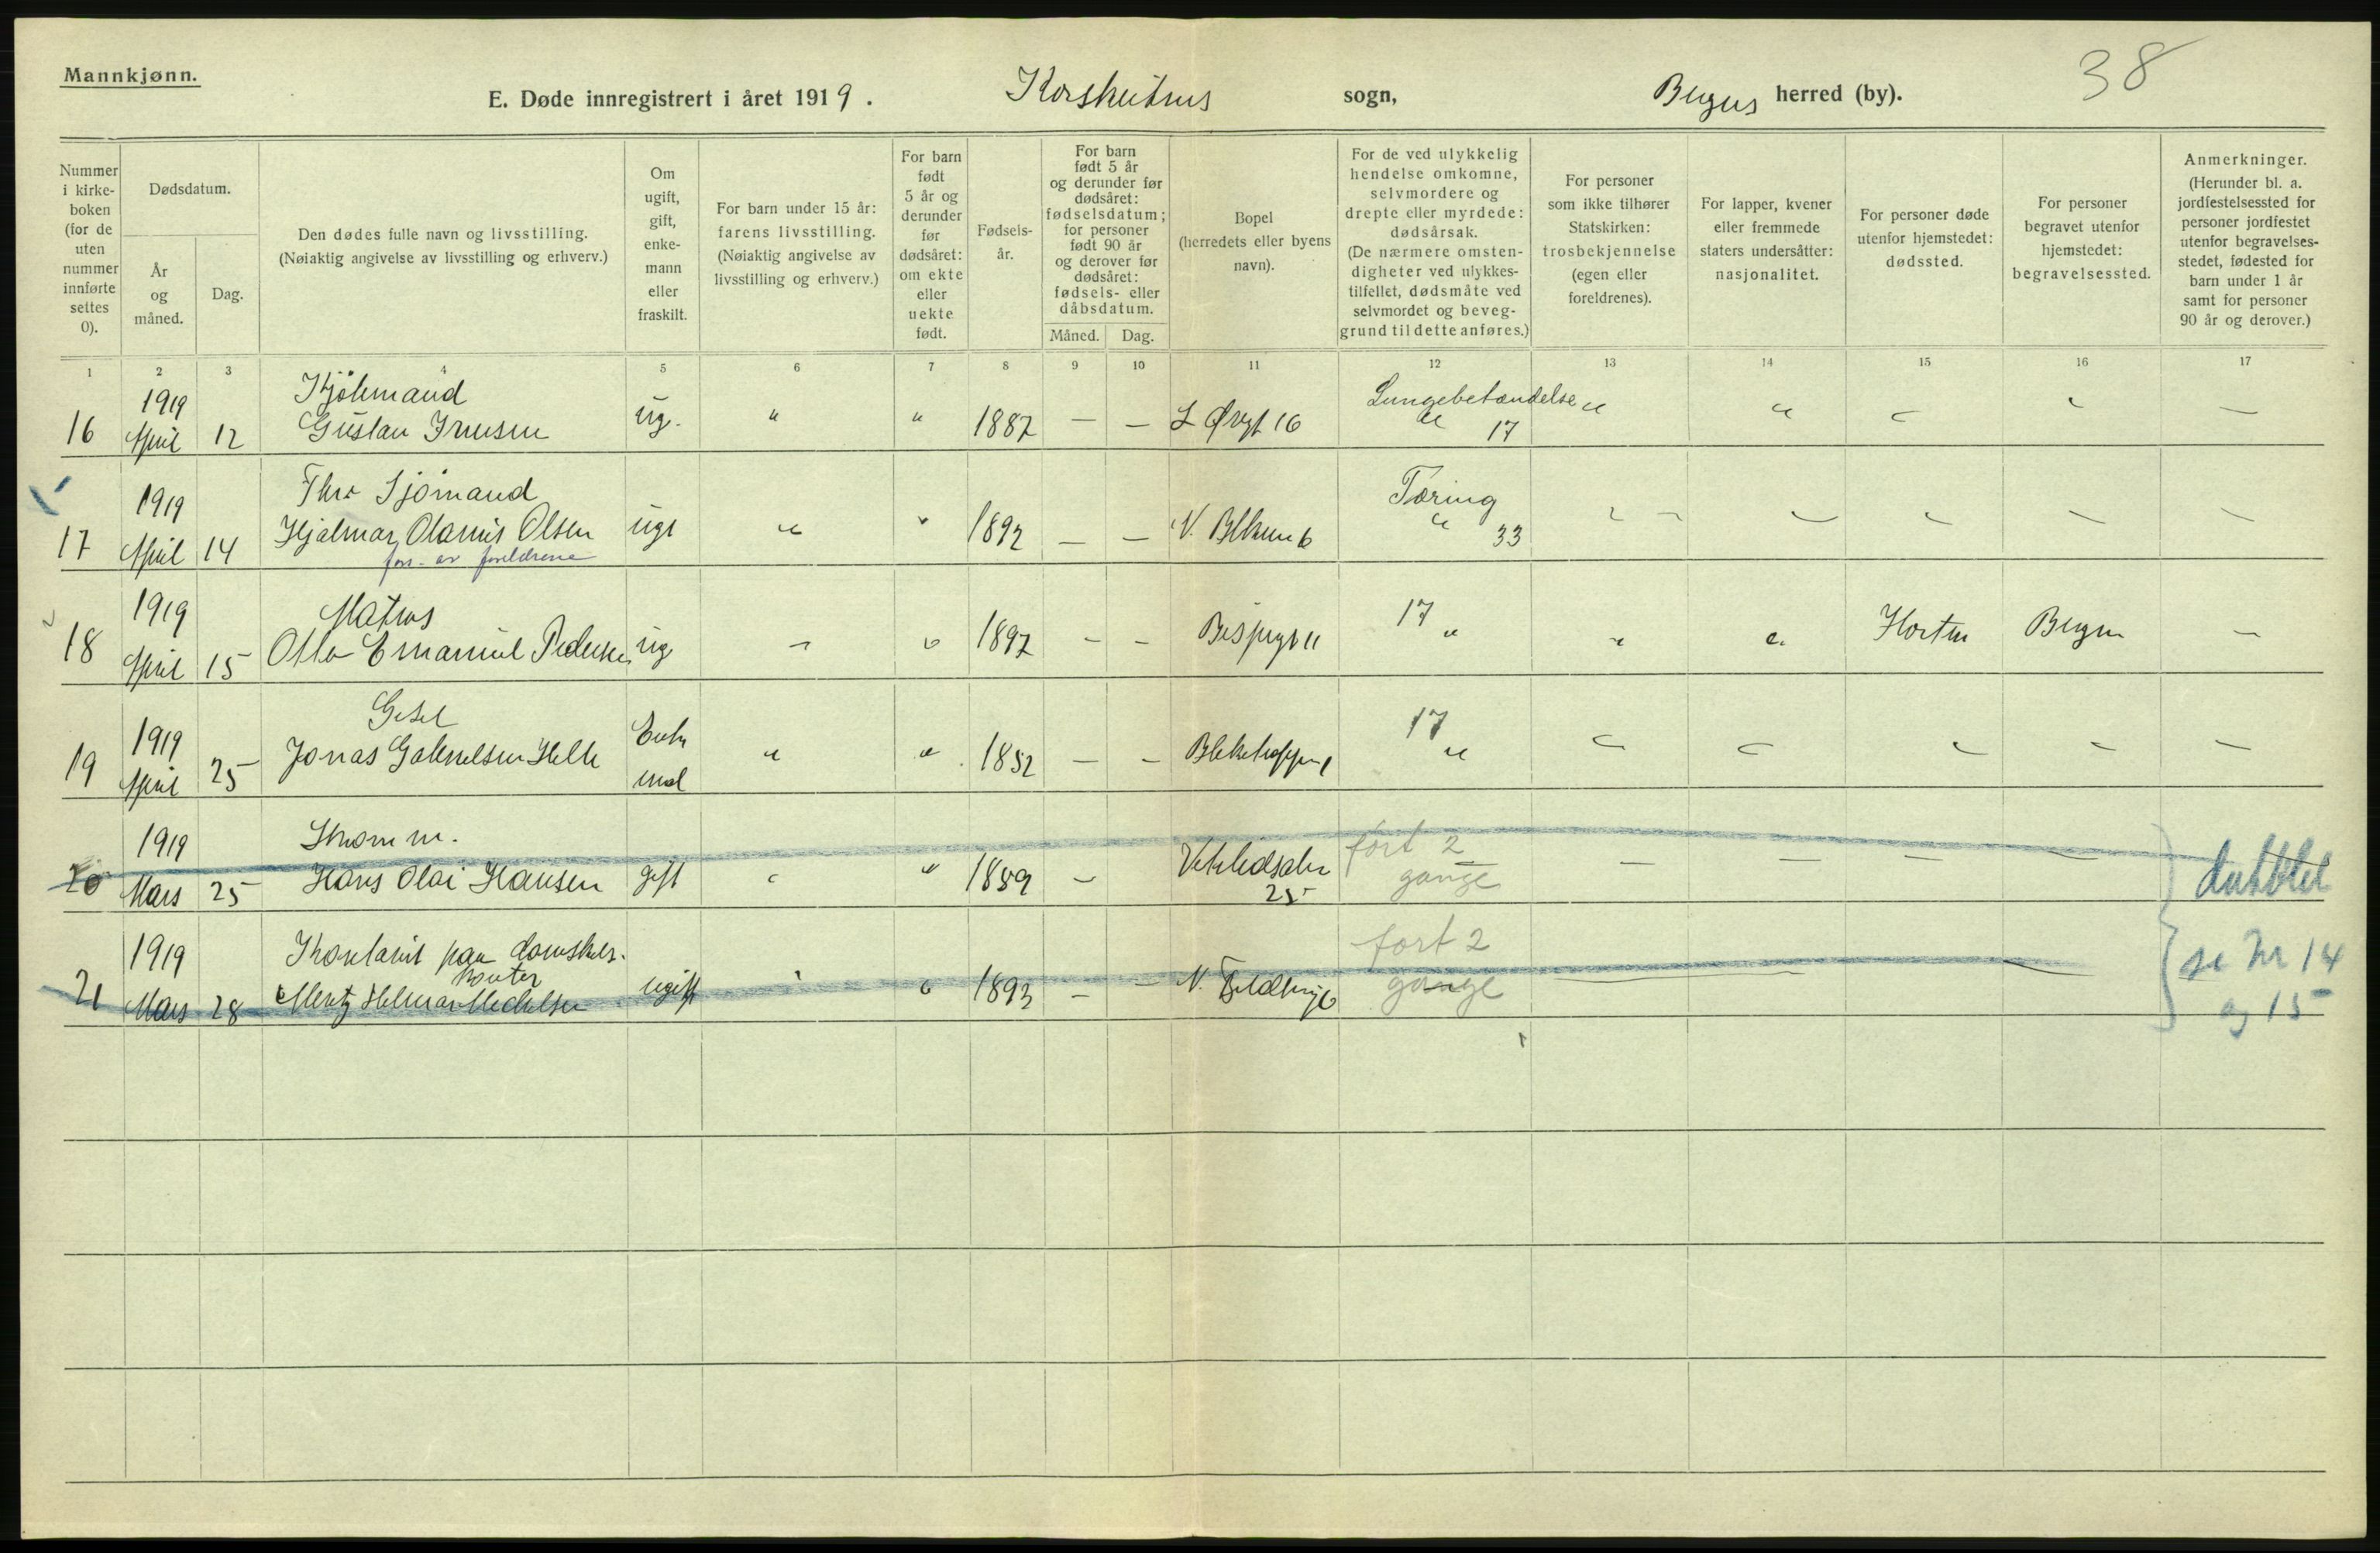 Mannkjønn.
E. Døde innregistrert i året 1919. Korskirkens sogn, Bergens herred (by). 38
Nummer i kirkeboken (for de uten nummer innførte settes 0).
Dødsdatum.
År og måned.
Dag.
Den dødes fulle navn og livsstilling.
(Nøiaktig angivelse av livsstilling og erhverv.)
Om ugift, gift, enkemann eller fraskilt.
For barn under 15 år:
farens livsstilling.
(Nøiaktig angivelse av livsstilling og erhverv.)
For barn født 5 år og derunder før dødsåret: om ekte eller uekte født.
Fødselsår.
For barn født 5 år og derunder før dødsåret: fødselsdatum; for personer født 90 år og derover før dødsåret: fødsels- eller dåbsdatum.
Måned. Dag.
Bopel
(herredets eller byens navn).
For de ved ulykkelig hendelse omkomne, selvmordere og drepte eller myrdede: dødsårsak.
(De nærmere omstendigheter ved ulykkestilfellet, dødsmåte ved selvmordet og beveggrund til dette anføres.)
For personer som ikke tilhører Statskirken: trosbekjennelse (egen eller foreldrenes).
For lapper, kvener eller fremmede staters undersåtter: nasjonalitet.
For personer døde utenfor hjemstedet: dødssted.
For personer begravet utenfor hjemstedet: begravelsessted.
Anmerkninger.
(Herunder bl. a. jordfestelsessted for personer jordfestet utenfor begravelsesstedet, fødested for barn under 1 år samt for personer 90 år og derover.)
1 2 3 4 5 6 7 8 9 10 11 12 13 14 15 16 17
1919 Lungebetændelse
16 April 12 Gustav ug. " " 1887 — — 16 " 17 " " — — —
1919 Sjömand Tæring
17 April 14 Hjalmar Olarius Olsen ugi " " 1892 — — N. 6 " 33 — — — — — —
fors. av foreldrene
1919 Matros 17
18 April 15 Otto Emanuel Pedersen ug — " 1897 — — Bispegt 11 " " " Horten Bergen —
Gesel Enke 17
1919
19 April 25 Jonas Gabrielsen Helle md " " 1852 — — 1 " — — — — —
1919 fört 2
20 Mars 25 Hans Olai Hansen gift " " 1889 — 25 gange — — — — dubblet
1919 Kontorist paa fört 2
kontor
21 Mars 28 Mentz ugift " " 1893 — — N. gange — — — — se Nr 14
og 15